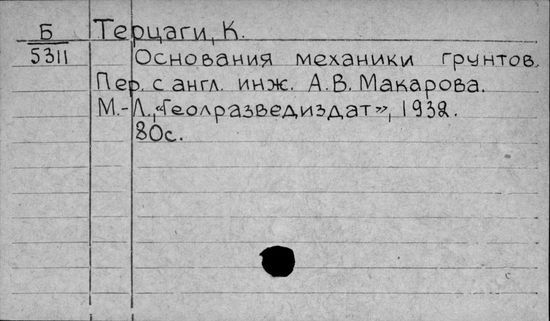 Б
5311
Терцаги, К.
Основания механики грунтов.
Пер. с англ. инж. А.В. Макарова.
М.-Л., «Геолразведиздат», 1932.
80с.